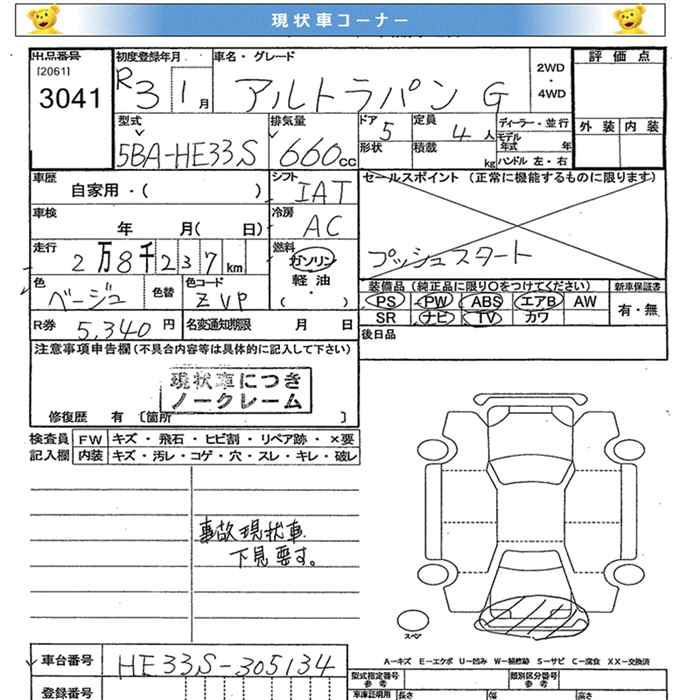 現状車コーナー
出品番号
[2061]
3041
初度登録年月
R3 1月
車名・グレード
アルトラパン G
2WD
・
4WD
評価点
外装 内装
型式
5BA-HE33S
排気量
660cc
ドア 5
形状
定員 4人
積載 kg
ディーラー・並行
モデル年式 年
ハンドル 左・右
車歴
自家用・( )
シフト
IAT
セールスポイント (正常に機能するものに限ります)
プッシュスタート
車検
年 月( 日)
冷房
AC
走行
2万8千237km
燃料
ガソリン
軽油
・
( )
色
ベージュ
色替
色コード
ZVP
装備品 (純正品に限り○をつけてください)
PS PW ABS エアB AW
SR ナビ TV カワ
新車保証書
有・無
R券 5,340円
名変通知期限 月 日
後日品
注意事項申告欄 (不具合内容等は具体的に記入して下さい)
現状車につき
ノークレーム
修復歴 有 〔箇所 〕
検査員 FW キズ・飛石・ヒビ割・リペア跡・×要
記入欄 内装 キズ・汚レ・コゲ・穴・スレ・キレ・破レ
事故現状車
下見要す。
スペア
A-キズ E-エクボ U-凹み W-補修跡 S-サビ C-腐食 XX-交換済
車台番号 HE33S-305134
型式指定番号
参考
類別区分番号
参考
登録番号
車庫証明用 長さ 幅 高さ